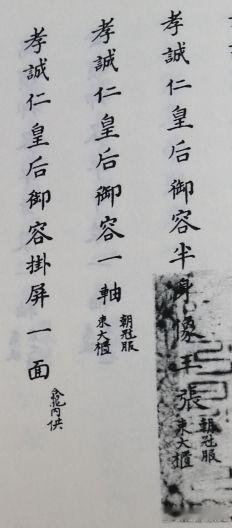 孝誠仁皇后御容半身像張
朝冠服
東大櫃
孝誠仁皇后御容一軸
朝冠服
東大櫃
孝誠仁皇后御容掛屏一面
龕內供